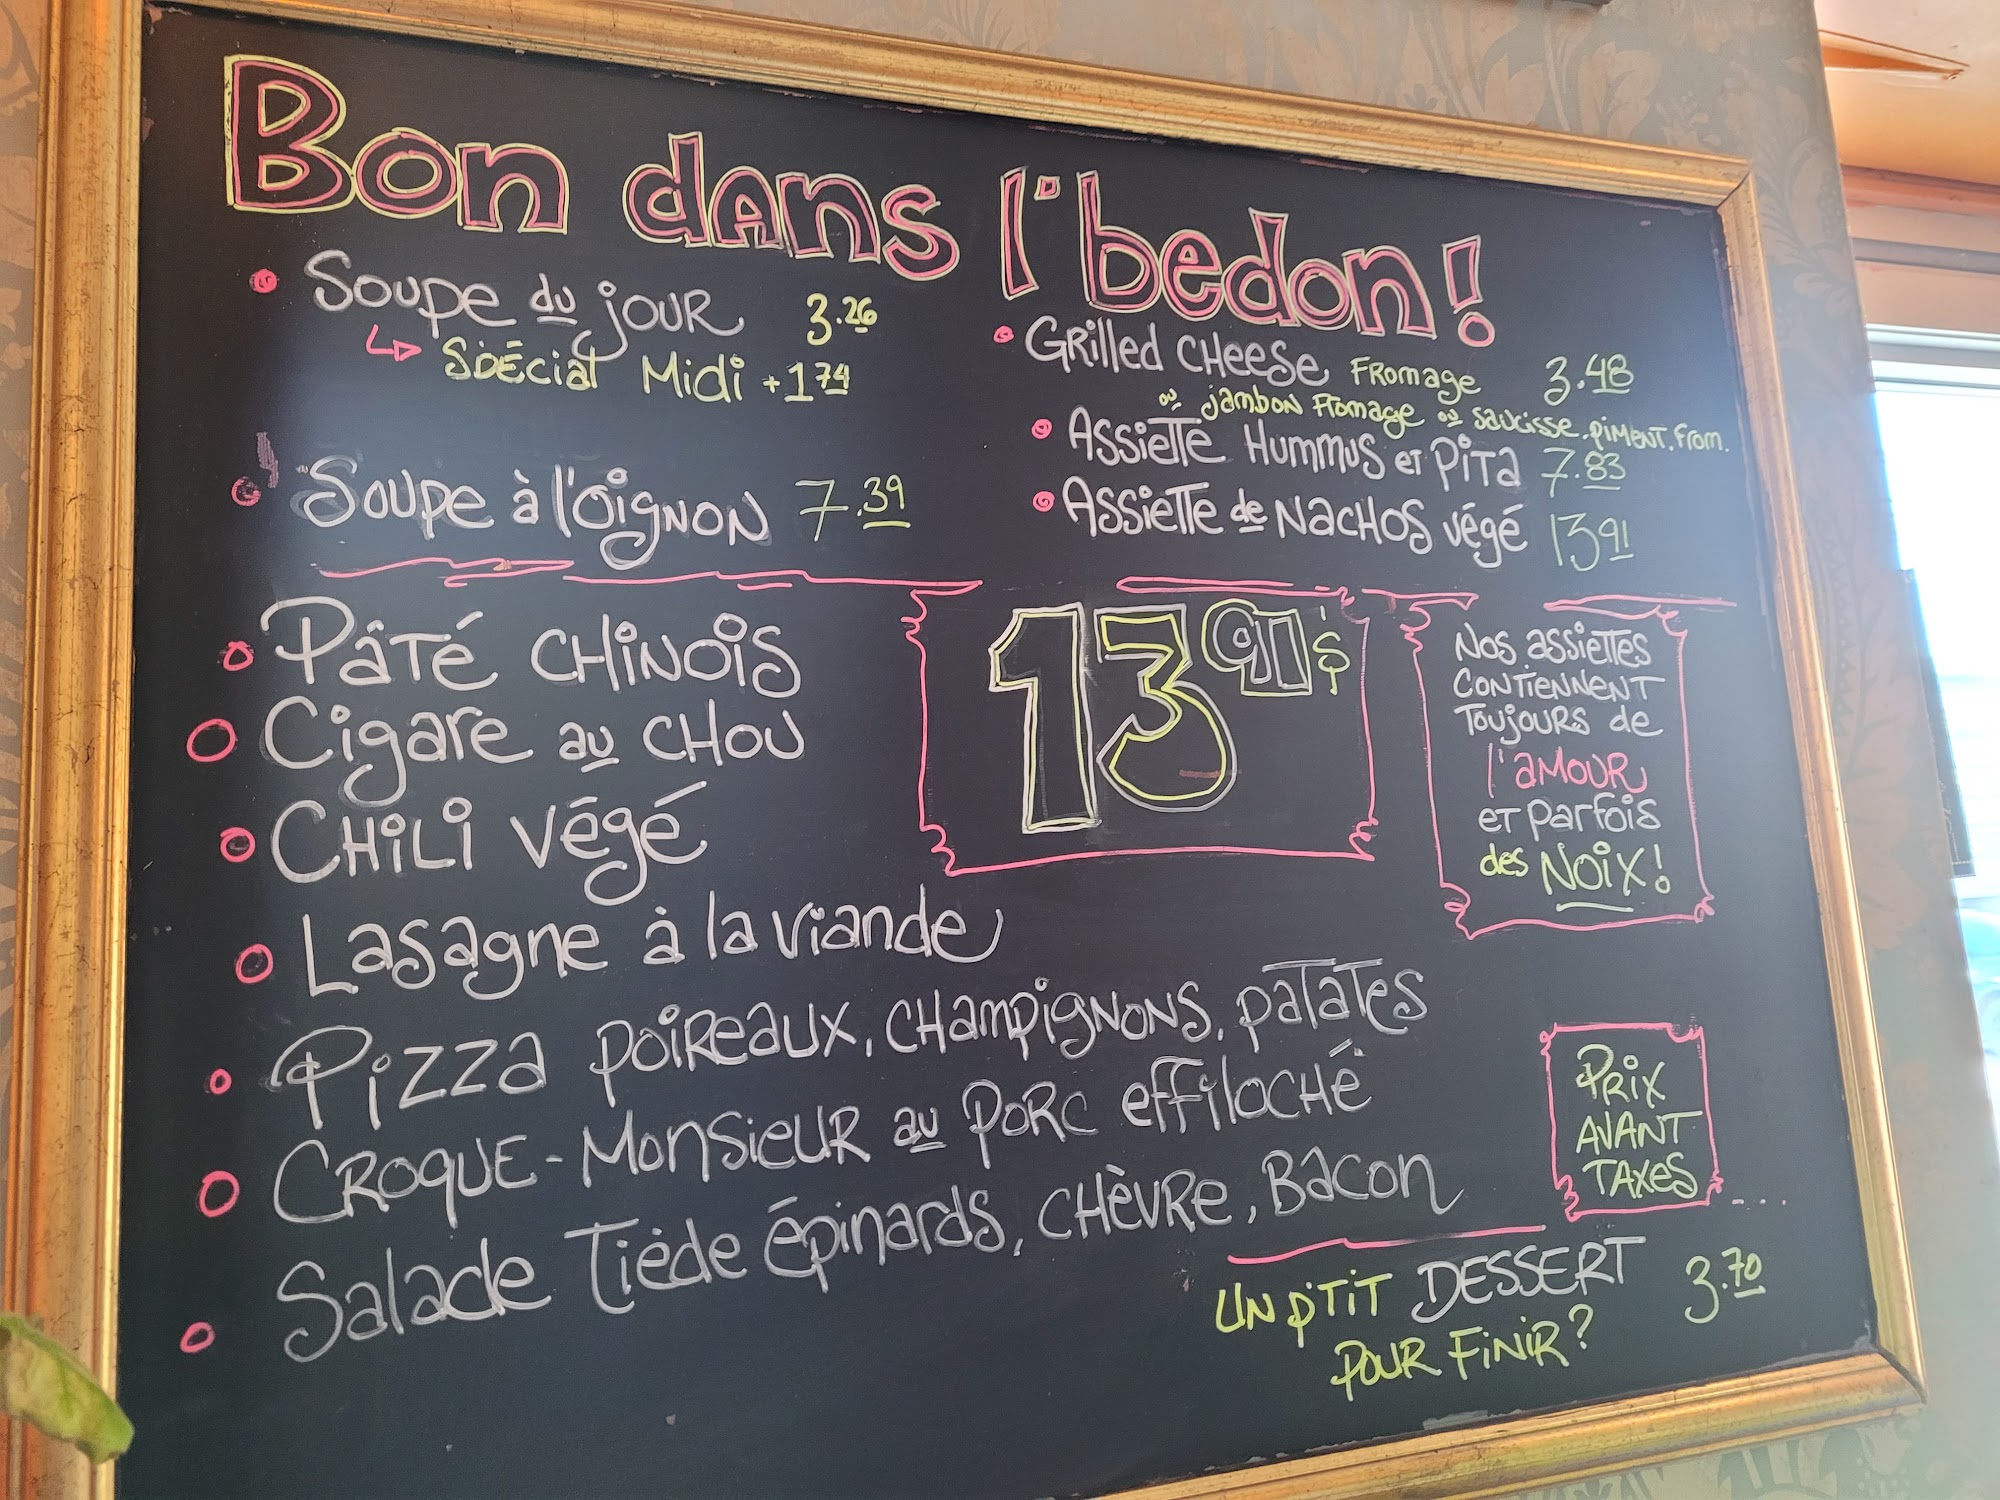 Bon dans l'bedon!
Soupe du jour 3.26
Spécial Midi +1 74
Soupe à l'oignon 7.39
Grilled cheese fromage 3.48
ou jambon fromage ou saucisse, piment, from.
Assiette Hummus et pita 7.83
Assiette de nachos végé 13 91
Pâté chinois
Cigare au chou
Chili végé
Lasagne à la viande
Pizza poireaux, champignons, patates
Croque-Monsieur au porc effiloché
Salade tiède épinards, chèvre, bacon
13 91 $
Nos assiettes
contiennent
toujours de
l'amour
et parfois
des noix!
Prix
avant
taxes
Un p'tit dessert 3.70
pour finir?